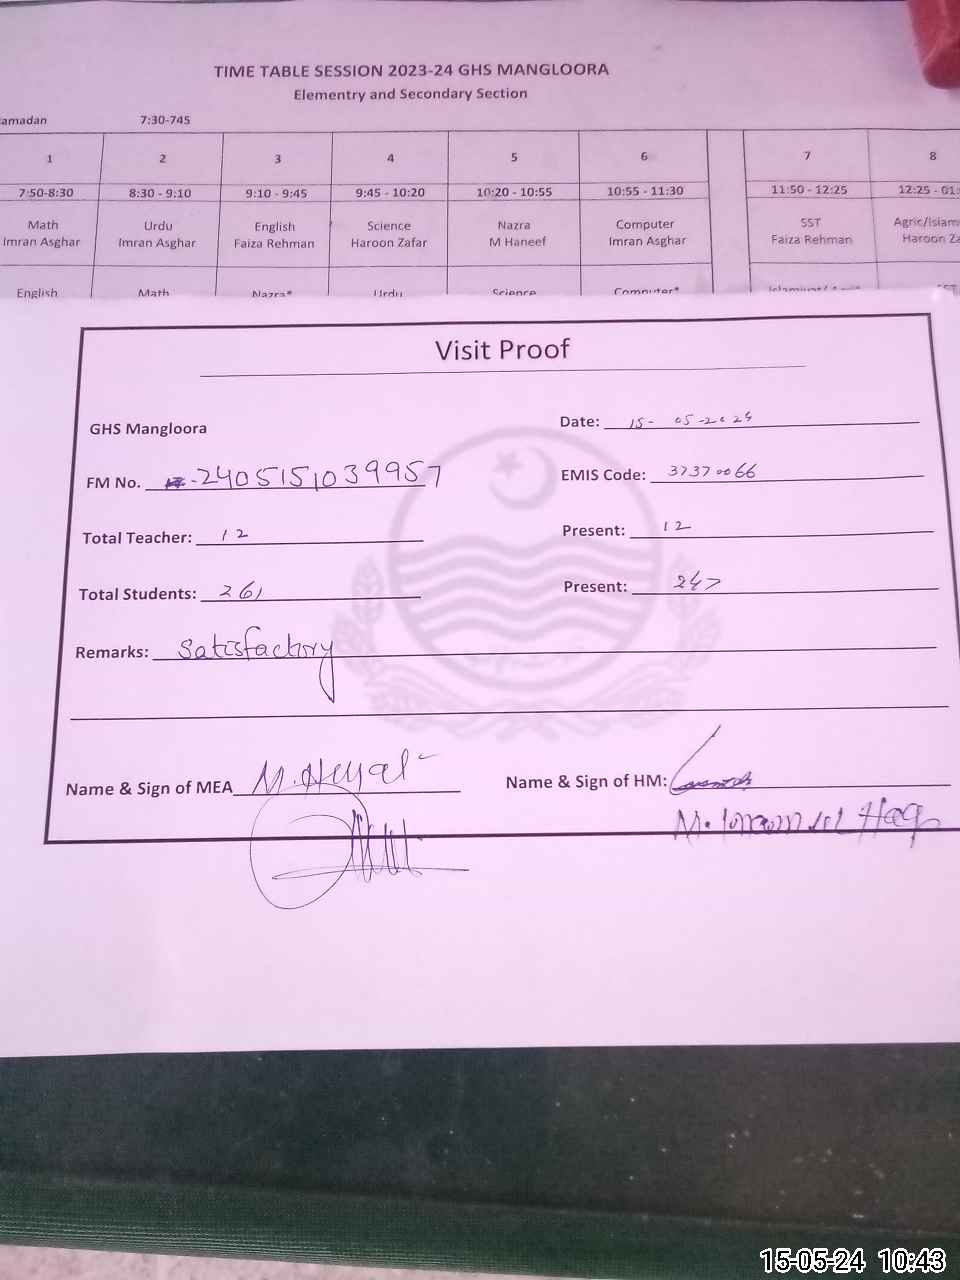 TIME TABLE SESSION 2023-24 GHS MANGLOORA
Elementry and Secondary Section
amadan 7:30-745
1 2 3 4 5 6 7 8
7:50-8:30 8:30 - 9:10 9:10 - 9:45 9:45 - 10:20 10:20 - 10:55 10:55 - 11:30 11:50 - 12:25 12:25 - 01:
Math Urdu English Science Nazra Computer SST Agric/Islam
Imran Asghar Imran Asghar Faiza Rehman Haroon Zafar M Haneef Imran Asghar Faiza Rehman Haroon Za
English Math Nazra* Urdu Science Computer*
Visit Proof
GHS Mangloora Date: 15-05-2024
FM No. -2405151039957 EMIS Code: 37370066
Total Teacher: 12 Present: 12
Total Students: 261 Present: 247
Remarks: Satisfactory
Name & Sign of MEA M. Name & Sign of HM:
M. ul Haq
15-05-24 10:43